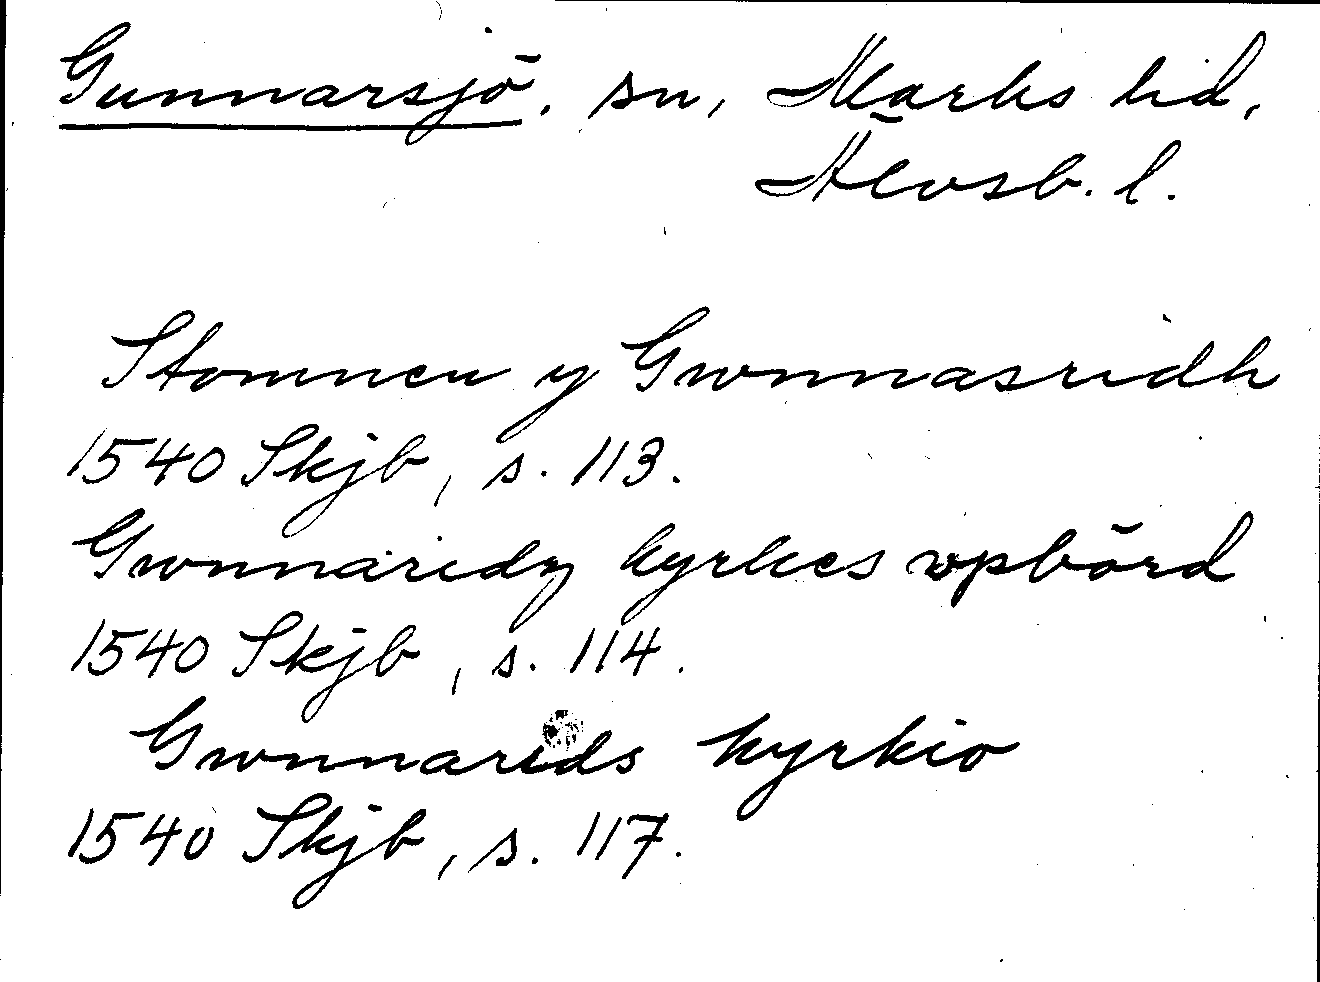 Gunnarsjö, sn, Marks hd,
Älvsb. l.
Stomnen y Gwnnasridh
1540 Skjb, s. 113.
Gwnnaridz kyrkes vpbörd
1540 Skjb, s. 114.
Gwnnarids kyrkio
1540 Skjb, s. 117.